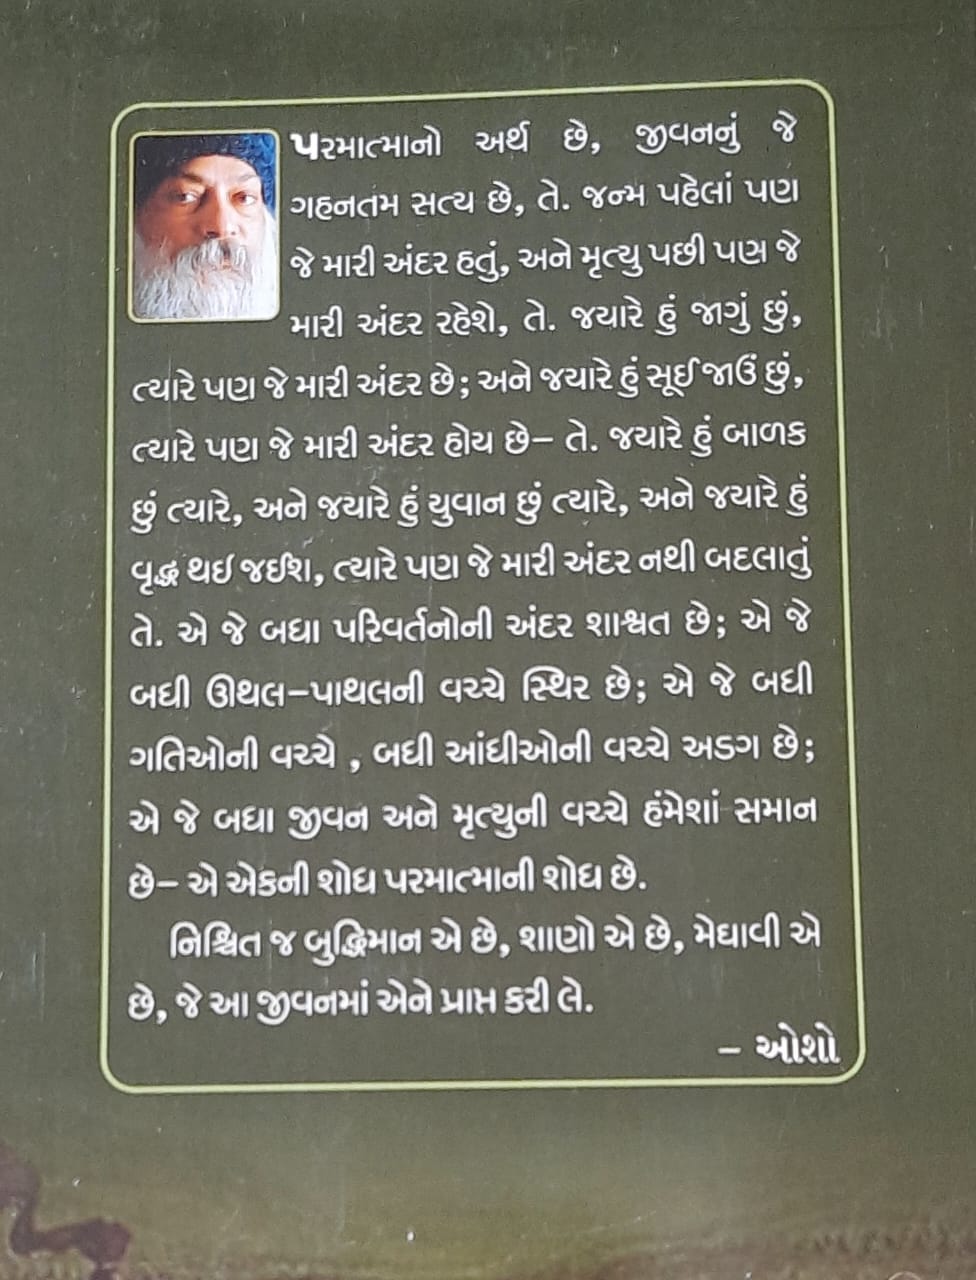 પરમાત્માનો અર્થ છે, જીવનનું જે
ગહનતમ સત્ય છે, તે. જન્મ પહેલાં પણ
જે મારી અંદર હતું, અને મૃત્યુ પછી પણ જે
મારી અંદર રહેશે, તે. જ્યારે હું જાગું છું,
ત્યારે પણ જે મારી અંદર છે; અને જ્યારે હું સૂઈ જાઉં છું,
ત્યારે પણ જે મારી અંદર હોય છે– તે. જ્યારે હું બાળક
છું ત્યારે, અને જ્યારે હું યુવાન છું ત્યારે, અને જ્યારે હું
વૃદ્ધ થઇ જઈશ, ત્યારે પણ જે મારી અંદર નથી બદલાતું
તે. એ જે બધા પરિવર્તનોની અંદર શાશ્વત છે; એ જે
બધી ઊથલ–પાથલની વચ્ચે સ્થિર છે; એ જે બધી
ગતિઓની વચ્ચે , બધી આંધીઓની વચ્ચે અડગ છે;
એ જે બધા જીવન અને મૃત્યુની વચ્ચે હંમેશાં સમાન
છે– એ એકની શોધ પરમાત્માની શોધ છે.
નિશ્ચિત જ બુદ્ધિમાન એ છે, શાણો એ છે, મેઘાવી એ
છે, જે આ જીવનમાં એને પ્રાપ્ત કરી લે.
– ઓશો